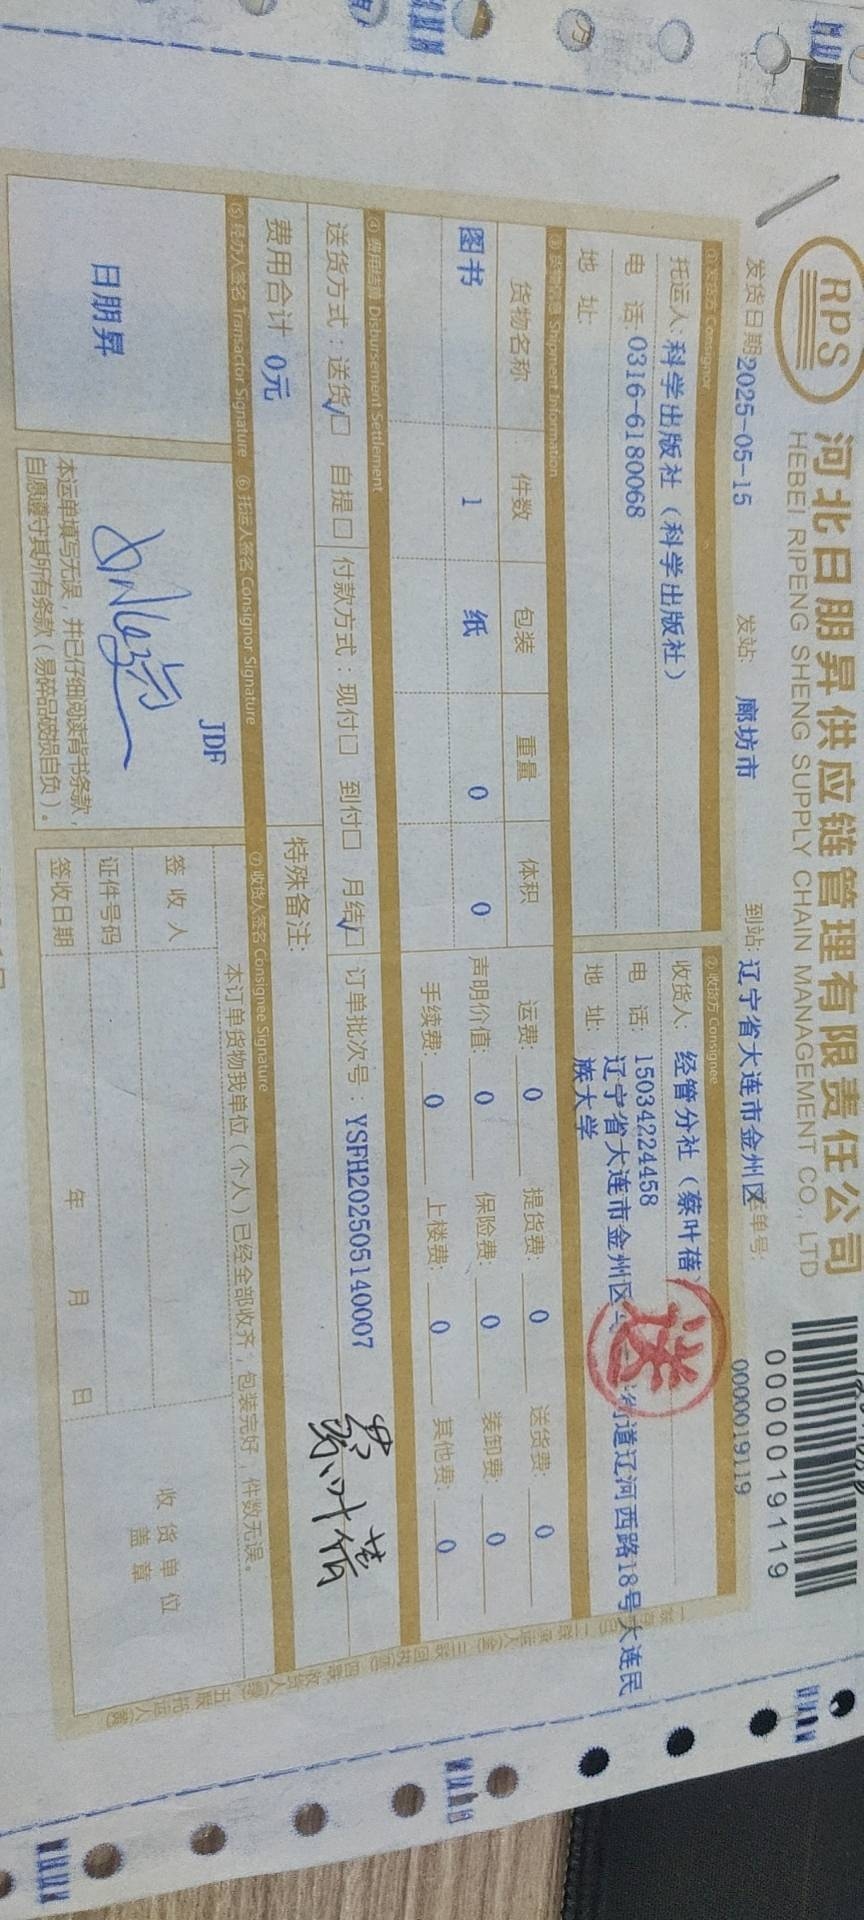 RPS
河北日朋昇供应链管理有限责任公司
HEBEI RIPENG SHENG SUPPLY CHAIN MANAGEMENT CO., LTD
0000019119
发货日期 2025-05-15 发站: 廊坊市 到站: 辽宁省大连市金州区 单号: 0000019119
Consignor
托运人: 科学出版社（科学出版社）
电 话: 0316-6180068
地 址:
② 收货方 Consignee
收货人: 经管分社（蔡叶蓓
电 话: 15034224458
地 址: 辽宁省大连市金州区 街道辽河西路18号大连民
族大学
送
Shipment Information
货物名称 件数 包装 重量 体积
图书 1 纸 0 0
运费: 0 提货费: 0 送货费: 0
声明价值: 0 保险费: 0 装卸费: 0
手续费: 0 上楼费: 0 其他费: 0
④ 费用结算 Disbursement Settlement
送货方式：送货☑ 自提□ 付款方式：现付□ 到付□ 月结☑ 订单批次号：YSFH202505140007
费用合计 0元 特殊备注:
蔡叶蓓
⑤ 经办人签名 Transactor Signature ⑥ 托运人签名 Consignor Signature ⑦ 收货人签名 Consignee Signature
日朋昇
JDF
本运单填写无误，并已仔细阅读背书条款，
自愿遵守其所有条款（易碎品破损自负）。
本订单货物我单位（个人）已经全部收齐，包装完好，件数无误。
签 收 人
证件号码
签收日期 年 月 日
收货单位
盖 章